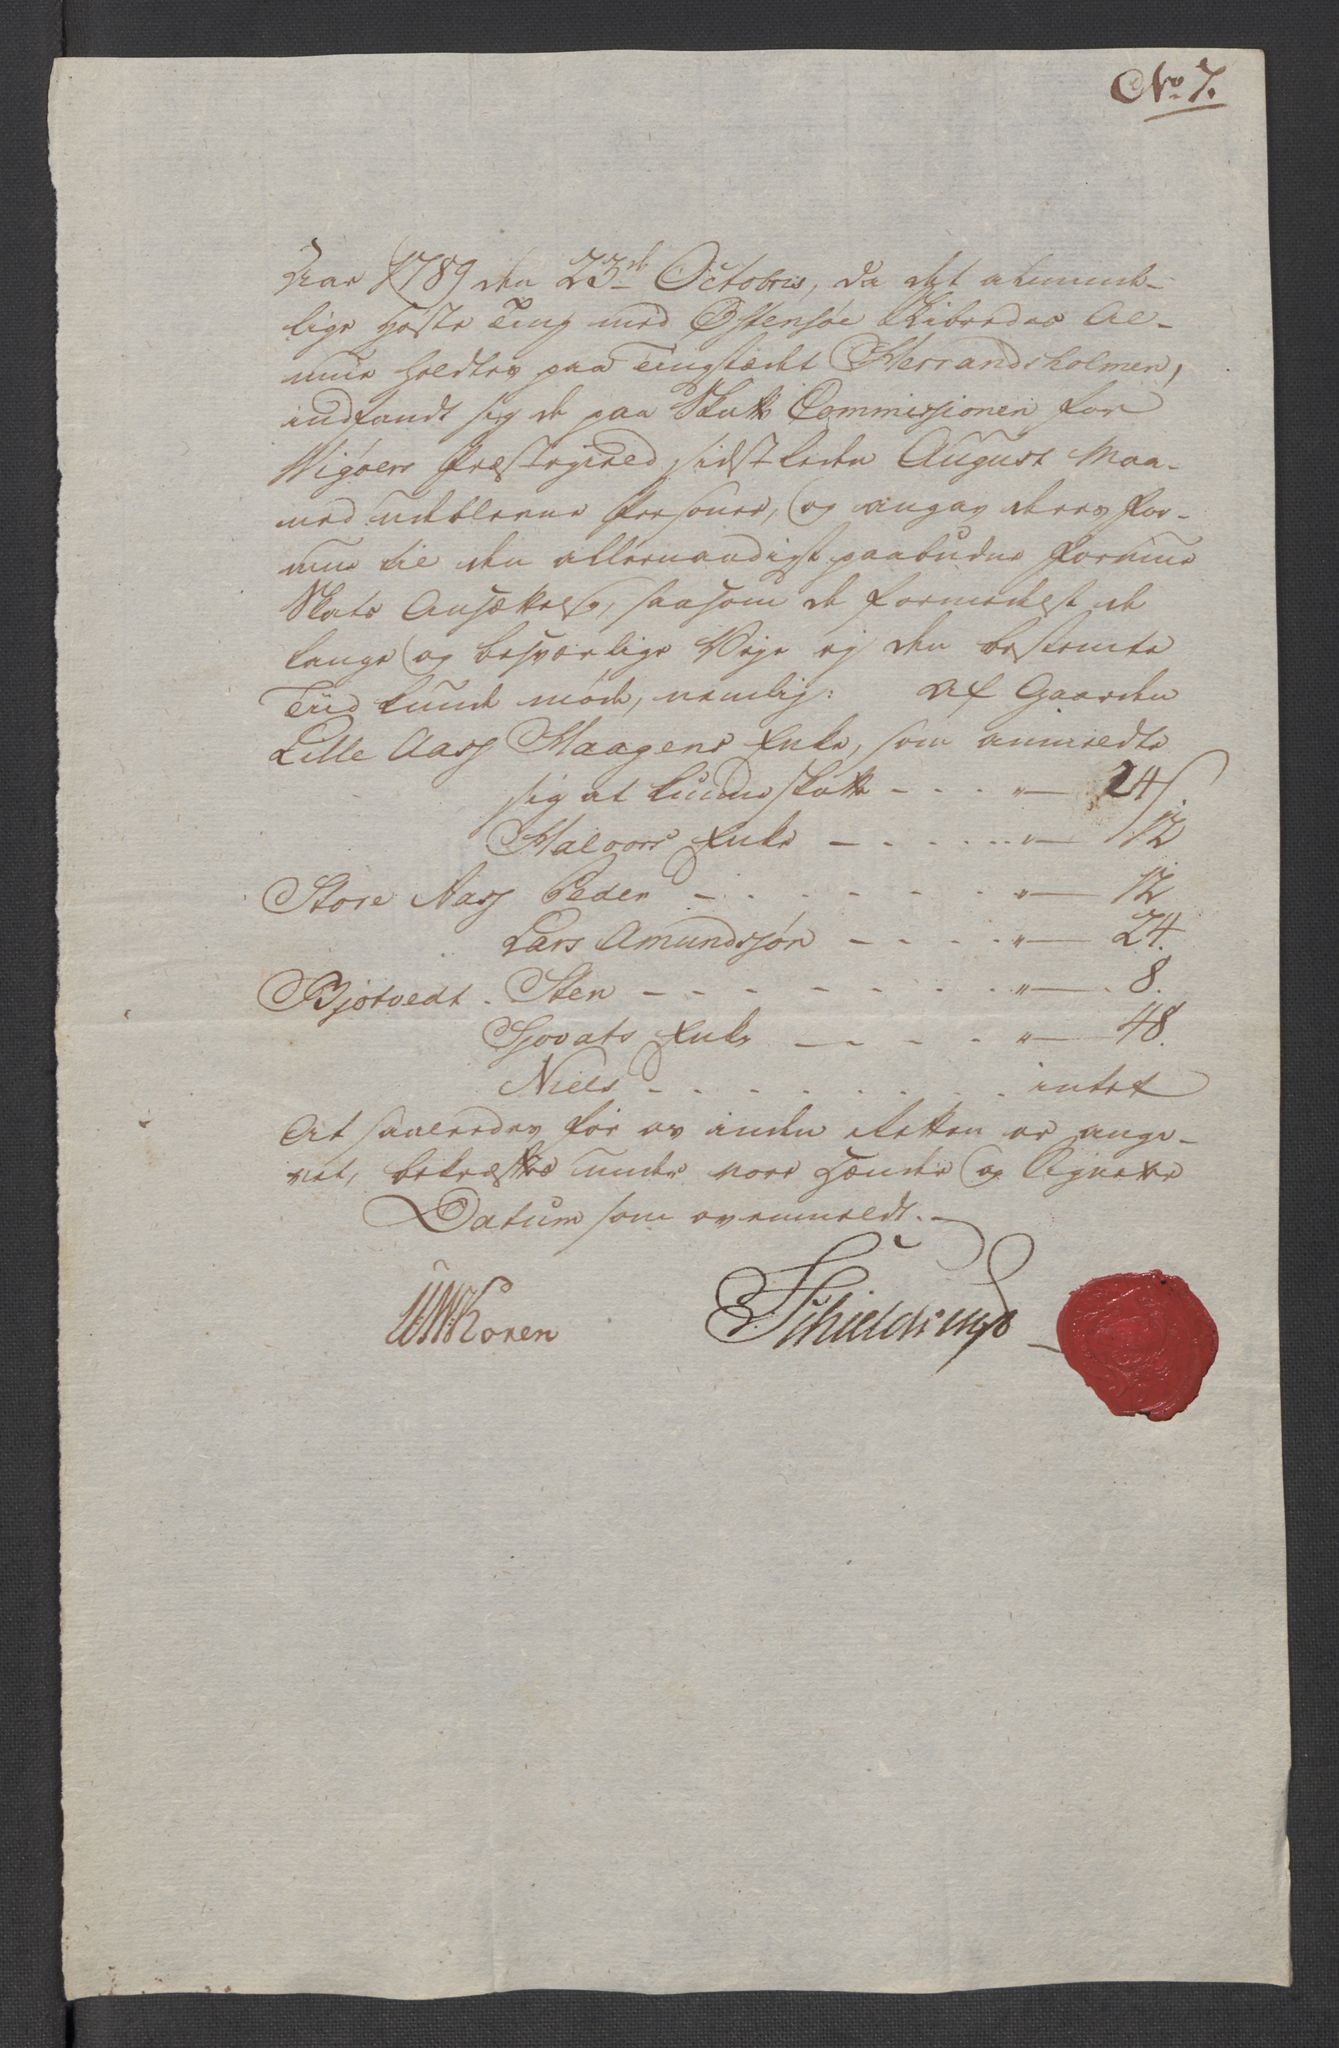 No 7.
Aar 1789 den 23de Octobris, da det alminde-
lige Høste Ting med Østensøe Skibredes Al-
mue holdtes paa Tingstædet Herrandsholmen,
indfandt sig de paa Skatte Commissionen for
Wigøers Præstegield sidstleden August Maa-
ned udeblevne Personer, og angav deres For-
mue til den allernaadigst paabudne Formue
Skats Ansættelse, saasom de formedelst de
lange og besværlige Veje ej den bestemte
Tiid kunde møde, nemlig: Af Gaarden
Lille Aas Haagens Enke, som anmeldte
sig at kunde skatte - - - " — 24 s
Halvors Enke — - - - - " — 12
Store Aas Peder - - - - - - - " — 12
Lars Amundsøn - - - - " — 24.
Bjotvedt. Sten - - - - - - - - " — 8.
Sjovats Enke — - - - " — 48.
Niels - - - - - - - - intet
At saaledes for os inden Retten er angi-
vet, bekræftes under vore Hænder og Signeter
Datum som ovenmeldt.
WM Koren
Schieldrup